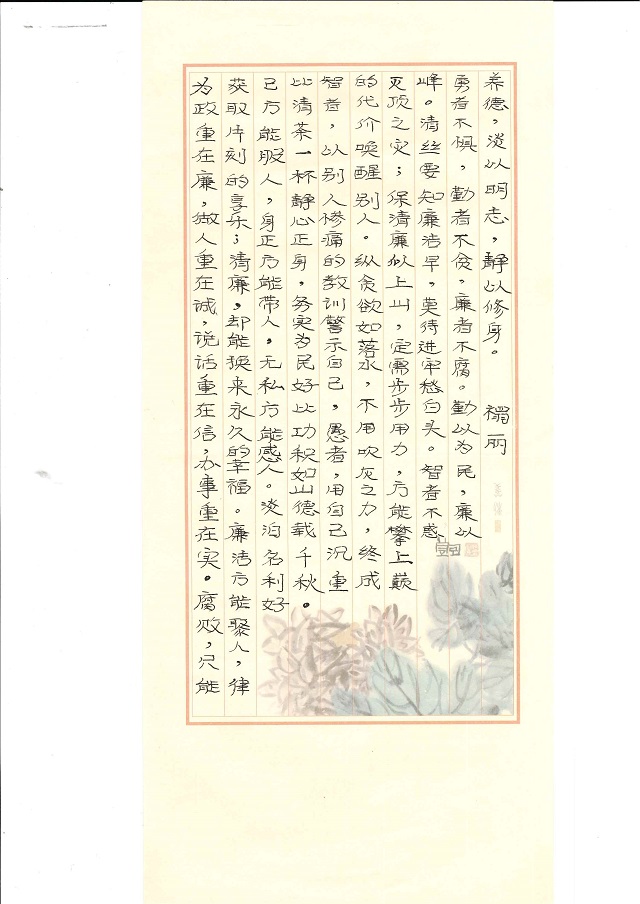 为政重在廉，做人重在诚，说话重在信，办事重在实。腐败，只能
获取片刻的享乐；清廉，却能换来永久的幸福。廉洁方能聚人，律
己方能服人，身正方能带人，无私方能感人。淡泊名利好
比清茶一杯静心正身，务实为民好比功积如山德载千秋。
智者，以别人惨痛的教训警示自己，愚者，用自己沉重
的代价唤醒别人。纵贪欲如落水，不用吹灰之力，终成
灭顶之灾；保清廉似上山，定需步步用力，方能攀上巅
峰。清丝要知廉洁早，莫待进牢愁白头。智者不惑
勇者不惧，勤者不贫，廉者不腐。勤以为民，廉以
养德，淡以明志，静以修身。 禤丽